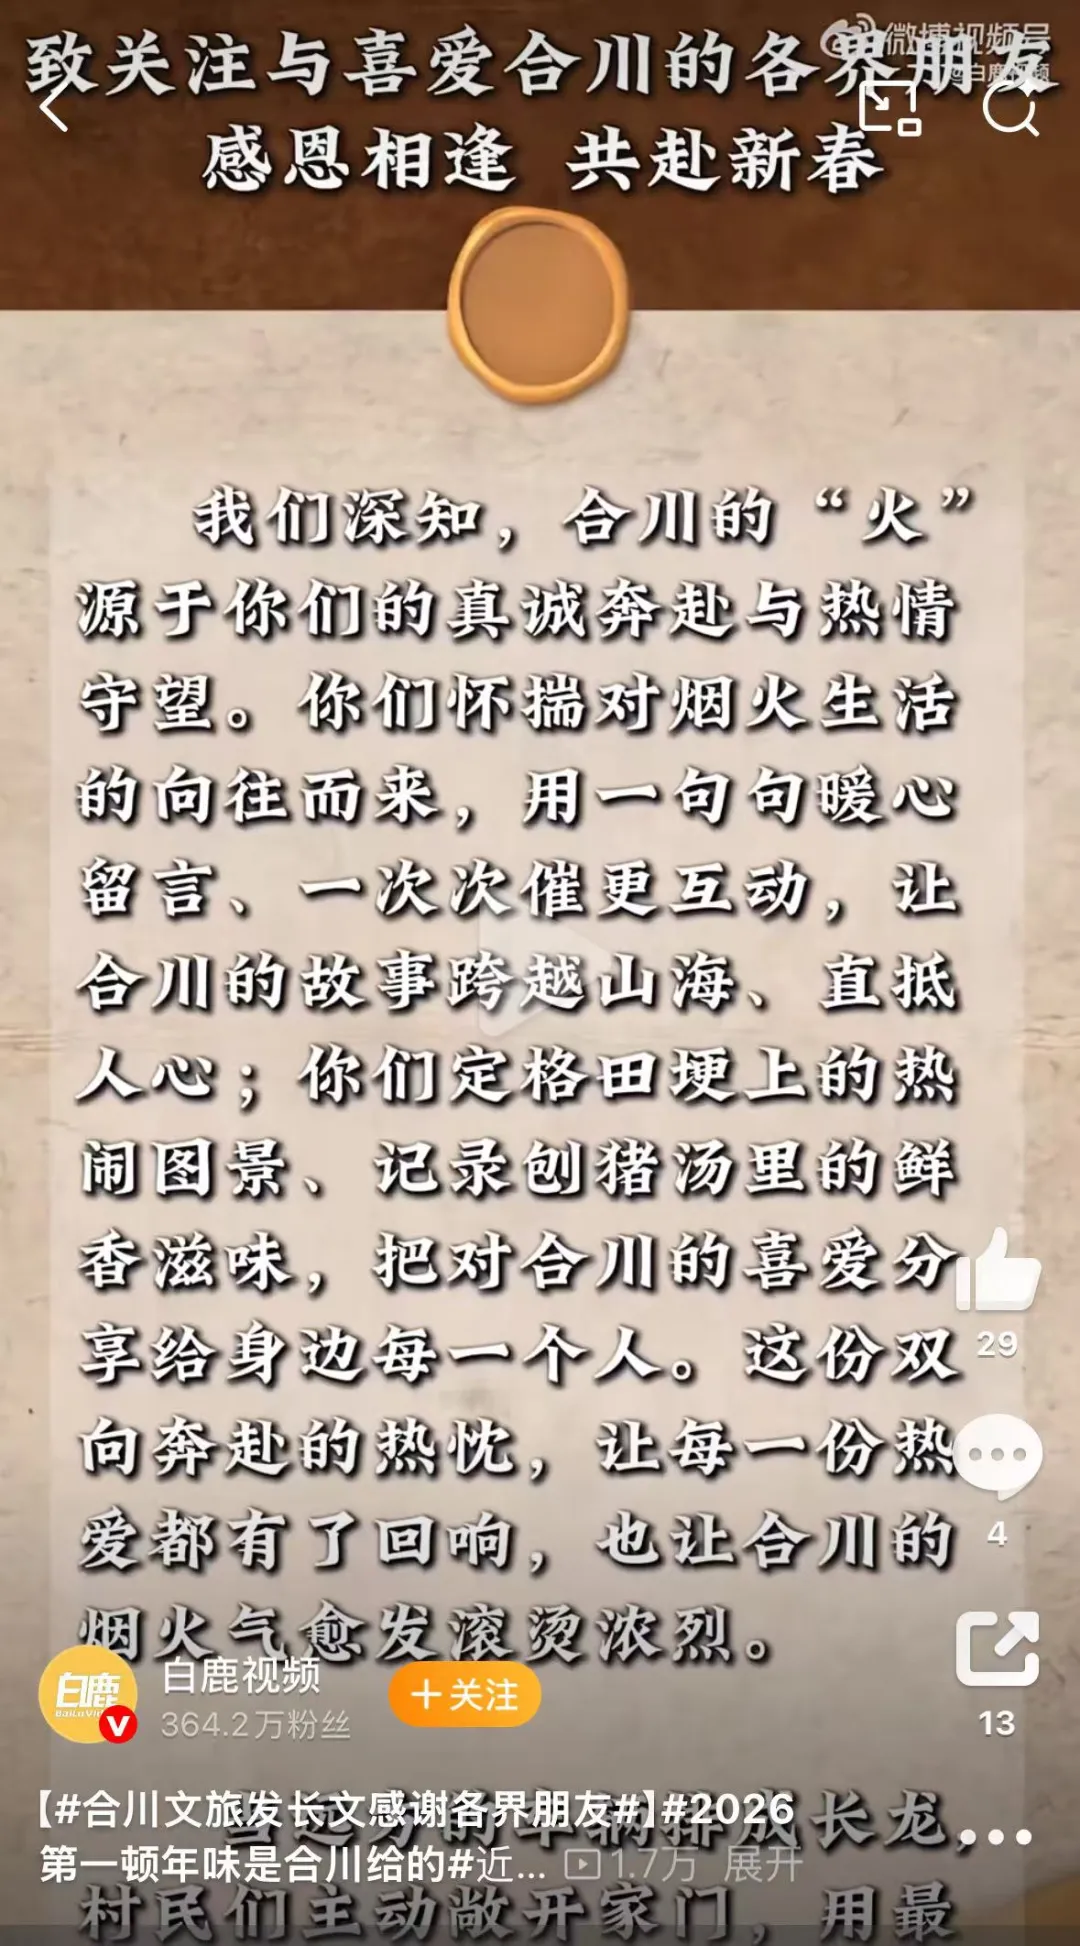 微博视频号
@白鹿视频
致关注与喜爱合川的各界朋友
感恩相逢 共赴新春
我们深知，合川的“火”
源于你们的真诚奔赴与热情
守望。你们怀揣对烟火生活
的向往而来，用一句句暖心
留言、一次次催更互动，让
合川的故事跨越山海、直抵
人心；你们定格田埂上的热
闹图景、记录刨猪汤里的鲜
香滋味，把对合川的喜爱分
享给身边每一个人。这份双
向奔赴的热忱，让每一份热
爱都有了回响，也让合川的
烟火气愈发滚烫浓烈。
29
4
13
白鹿
BaiLuVi
白鹿视频
364.2万粉丝
+关注
【#合川文旅发长文感谢各界朋友#】#2026
第一顿年味是合川给的#近... 1.7万 展开
的车辆排成长龙，
村民们主动敞开家门，用最